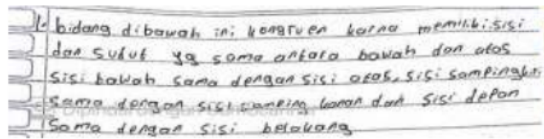 1. bidang dibawah ini kongruen karna memiliki sisi
dan sudut yg sama antara bawah dan atas
sisi bawah sama dengan sisi atas, sisi samping kiri
sama dengan sisi samping kanan dan sisi depan
sama dengan sisi belakang